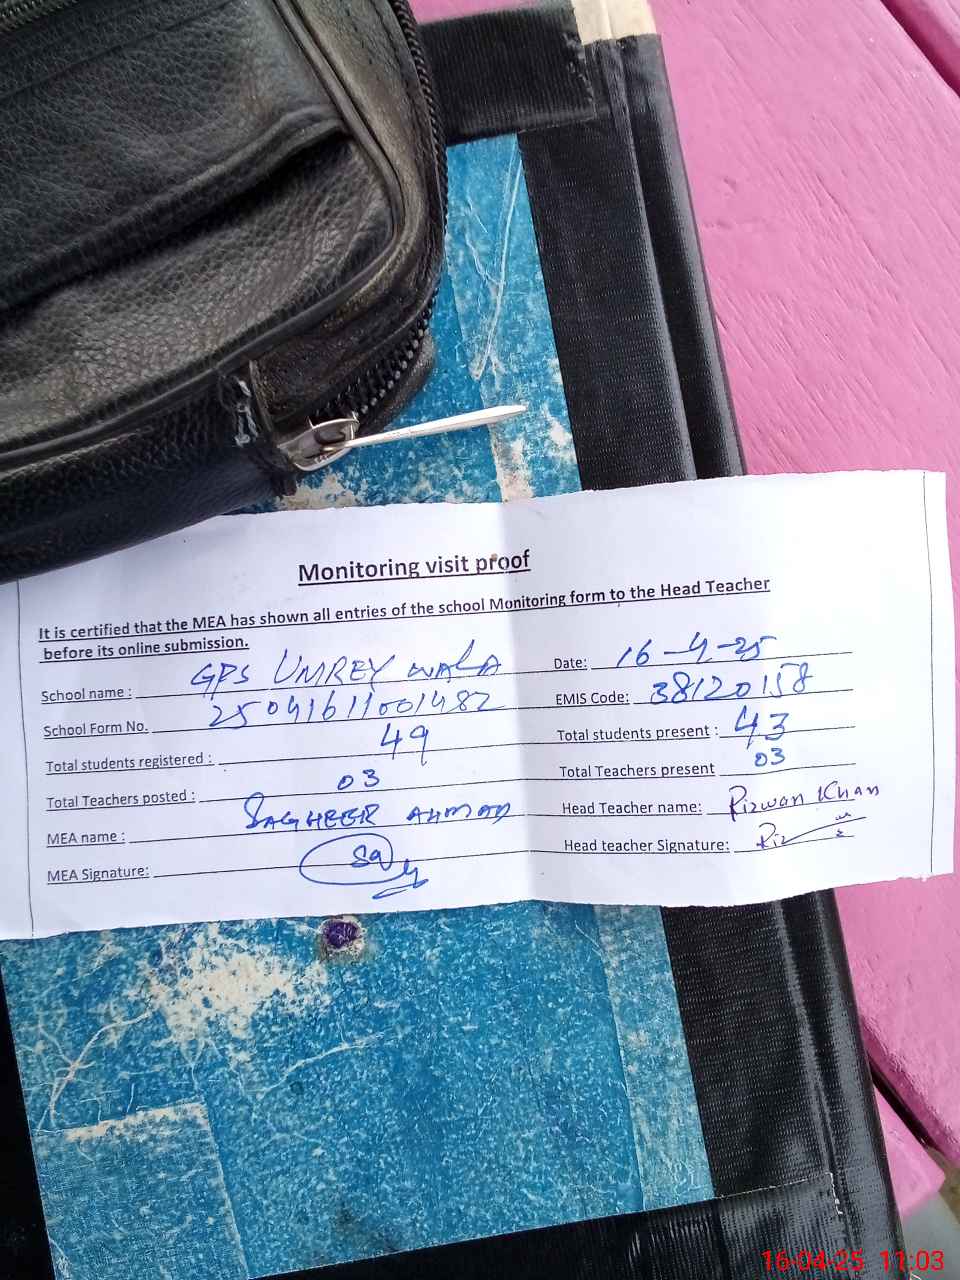 Monitoring visit proof
It is certified that the MEA has shown all entries of the school Monitoring form to the Head Teacher
before its online submission.
School name : GPS UMREY WALA Date: 16-4-25
School Form No. 25041611001482 EMIS Code: 38120158
Total students registered : 49 Total students present : 43
Total Teachers posted : 03 Total Teachers present 03
MEA name : SAGHEER AHMAD Head Teacher name: Rizwan Khan
MEA Signature: Head teacher Signature: Riz
16-04-25 11:03